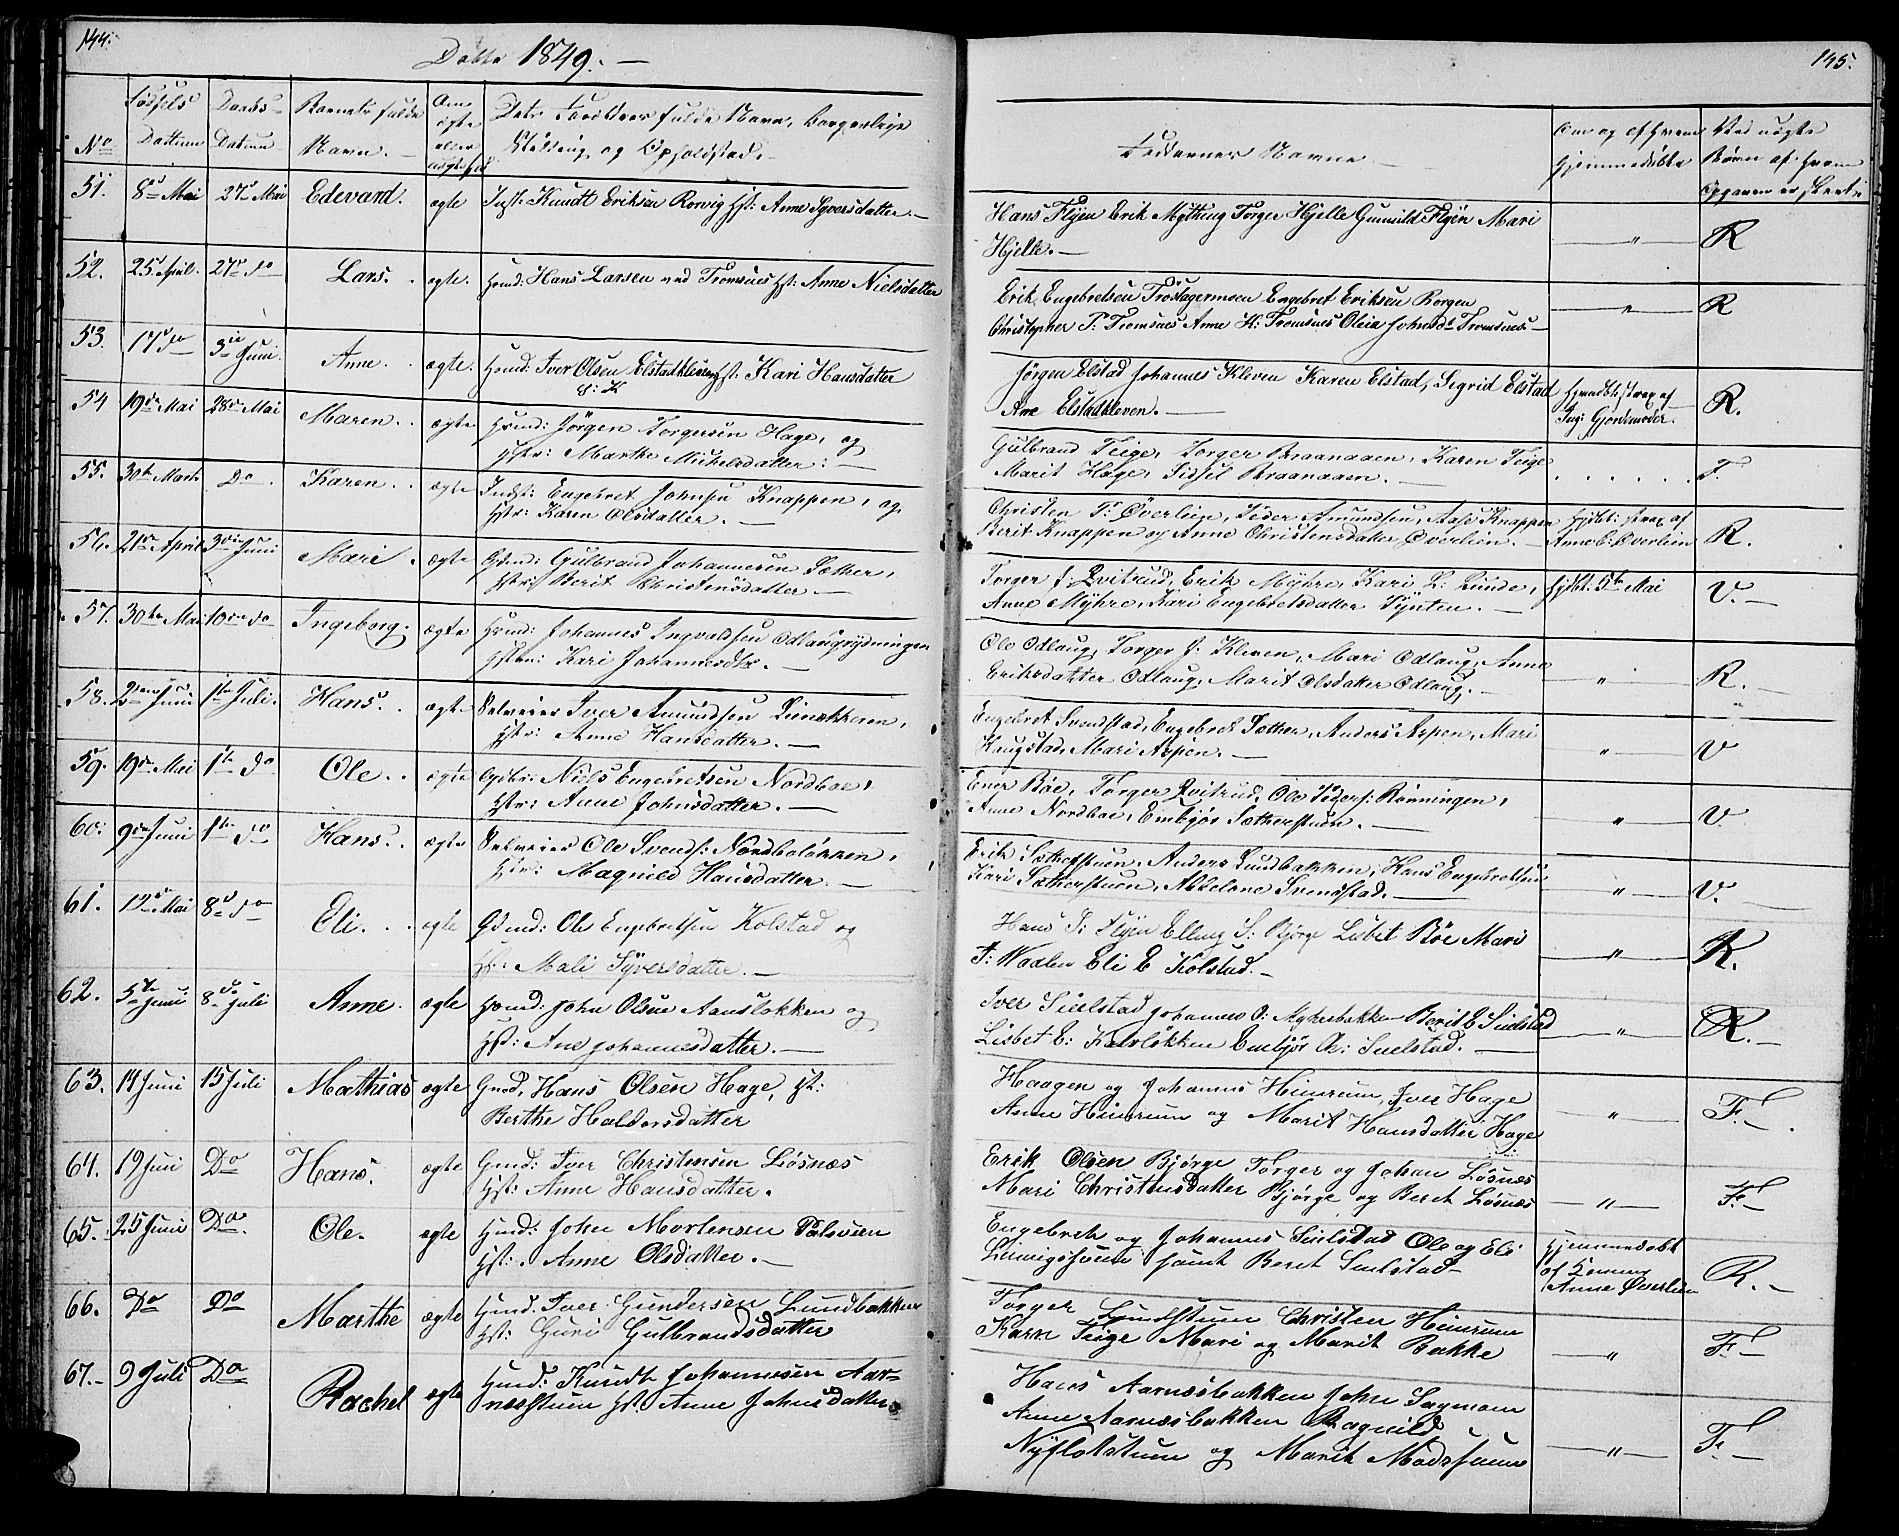 144.
Døbte 1849. —
No
Fødsels Dattum
Daabs Datum
Barnets fulde Navn. —
Om ægte eller uægtefød
Dets Forældres fulde Navn, borgerlige Stilling og Opholdsted. —
51. 8de Mai 27de Mai Edevard. ægte Inst: Knudt Eriksen Rorvig Hst: Anne Syversdatter. —
52. 25 April. 27de do Lars. ægte. Hmd: Hans Larsen ved Tromsnes Hst: Anne Nielsdatter
53. 17de do 3die Juni. Anne. ægte. Hmd: Iver Olsen Elstadkleven Hst: Kari Hansdatter
54 19de Mai 28de Mai Maren. ægte Hmd: Jörgen Torgersen Hage, og
Hstr: Marthe Michelsdatter: —
55. 30te Marts Do. Karen. ægte Indst: Engebret Johnsen Knappen, og
Hstr: Karen Olsdatter. —
56. 21de April 3die Juni Mari. ægte Gdmd: Gulbrand Johannesen Sæther,
Hstr: Berit Christensdatter. —
57. 30te Mai 10de do Ingeborg. ægte Hmd: Johannes Ingvaldsen Odlaugrydningen
Hstru: Kari Johannesdtr. —
58. Juni 1ste Juli. Hans. ægte Selveier Iver Amundsen
Hstr: Anne Hansdatter. —
59. 19de Mai 1ste do Ole. ægte Gdbr: Niels Engebretsen Nordboe,
Hstr: Anne Johnsdatter. —
60. 9de Juni 1ste do Hans. ægte Selveier Ole Svends: Nordboløkken,
Hstr: Magnild Hansdatter. —
61. 12de Mai 8de do Eli. ægte Gdmd: Ole Engebretsen Kolstad og
Hst: Mali Syversdatter. —
62. 5te Juni 8de Juli Anne. ægte Hmd: John Olsen Aansløkken og
Hst: Ane Johannesdatter. —
63. 14 Juni 15 Juli Mathias ægte Gmd, Hans Olsen Hage, Hst:
Berthe Haldorsdatter
64. 19 Juni Do Hans. ægte Gmd: Iver Christensen Løsnæs
Hst: Anne Hansdatter.
65. 25 Juni Do. Ole. ægte Hmd: John Mortensen
Hst: Anne Olsdatter. —
66. Do Do Marthe ægte Hmd. Iver Gundersen Lundbakken
Hst: Guri Gulbrandsdatter
67. 9 Juli Do Rachel ægte Hmd: Knudt Johannesen Aar-
næsstuen Hst. Anne Johnsdatter
145.
Faddernes Navne. —
Om og af hvem hjemmedøbte
Ved uægte Børn af hvem Opgaven er skeet
Hans Flyen Erik Mytting Torger Hjelle Gunnild Flyen Mari
Hjelle. — — " — R
Erik Engebretsen Trøstagermoen Engebret Eriksen Borgen
Christopher P: Tromsnes Anne H: Tromsnes Oleia Johnsdt Tromsnes — — " — R
Jørgen Elstad Johannes Kleven Karen Elstad, Sigrid Elstad
Ane Elstadkleven. — Hjemdbt strax af Ing: Gjordemoder. R.
Gulbrand Teige, Torger Braanaaen, Karen Teige
Marit Hage, Sidsel Braanaaen. — . . . . . . F.
Christen T: Øverlien, Peder Amundsen, Aase Knappen
Berit Knappen og Anne Christensdatter Øverlien. — Hjdbt: strax af Anne C: Øverlien R.
Torger J: Qvitrud, Erik Myhre, Kari L: Linde,
Anne Myhre, Kari Engebretsdatter — Hjdbt: 5te Mai V. —
Ole Odlaug, Torger J: Kleven, Mari Odlaug, Anne
Eriksdatter Odlaug, Marit Olsdatter Odlaug. — " R. —
Engebret Svendstad, Engebret Sæther, Anders Aspen, Mari
Kaugstad, Mari Aspen. — " V
Ener Böe, Torger Qvitrud, Ole Peders: Rönningen,
Anne Nordboe, Embjør Sætherstuen. — " V.
Erik Sætherstuen, Anders Sundbakken, Hans Engebretsen
Kari Sætherstuen, Svendstad. — " V. —
Hans P: Flyen Elling S: Bjørge Lisbet Böe Mari
T: Eli E Kolstad. — — " — R.
Iver Suelstad Johannes O: Berit E Suelstad
Lisbet E: Embjør O: Suelstad. — — " — R. —
Haagen og Johannes Heinrum, Iver Hage
Anne Heinrum og Marit Hansdatter Hage — " — F. —
Erik Olsen Bjørge Torger og Johan Løsnæs
Mari Christensdatter Bjørge og Beret Løsnæs — " — F. —
Engebret og Johannes Suelstad Ole og Eli
samt Beret Suelstad — Hjemmedøbt af Anne Øverlien R. —
Torger Christen Heinrum
Karn Teige Mari og Marit Bakke — " — F —
Hans Aarnæsbakken John
Anne Aarnæsbakken Ragnild
og Marit — " — F —